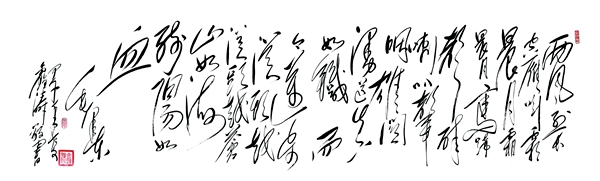 西风烈長
空雁叫霜
晨月霜
晨月馬蹄
聲碎
喇叭聲
咽雄関
漫道真
如鐵而
今迈步
從頭越
從頭越蒼
山如海
殘陽如
血
毛泽东